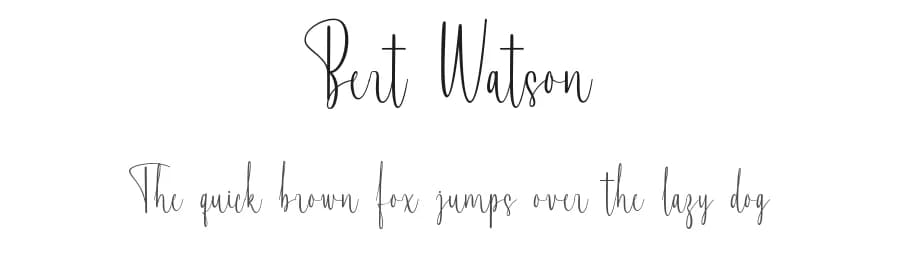 Bert Watson
The quick brown fox jumps over the lazy dog